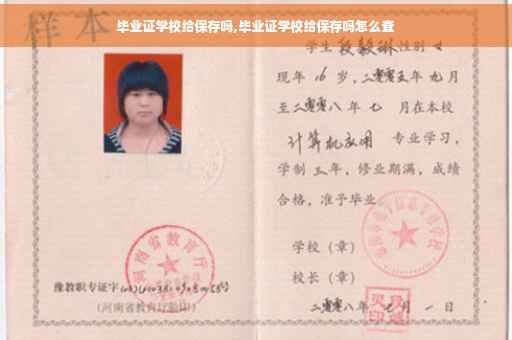 毕业证学校给保存吗,毕业证学校给保存吗怎么查
样本
学生 段毅琳 性别 女
现年 16 岁,二零零五年 九 月
至二零零八 年 七 月在本校
计算机应用 专业学习,
学制 三 年,修业期满,成绩
合格,准予毕业
学校(章)
校长(章)
二零零八年 七 月 一 日
河南省教育厅
豫教职专证字
(河南省教育厅验印)